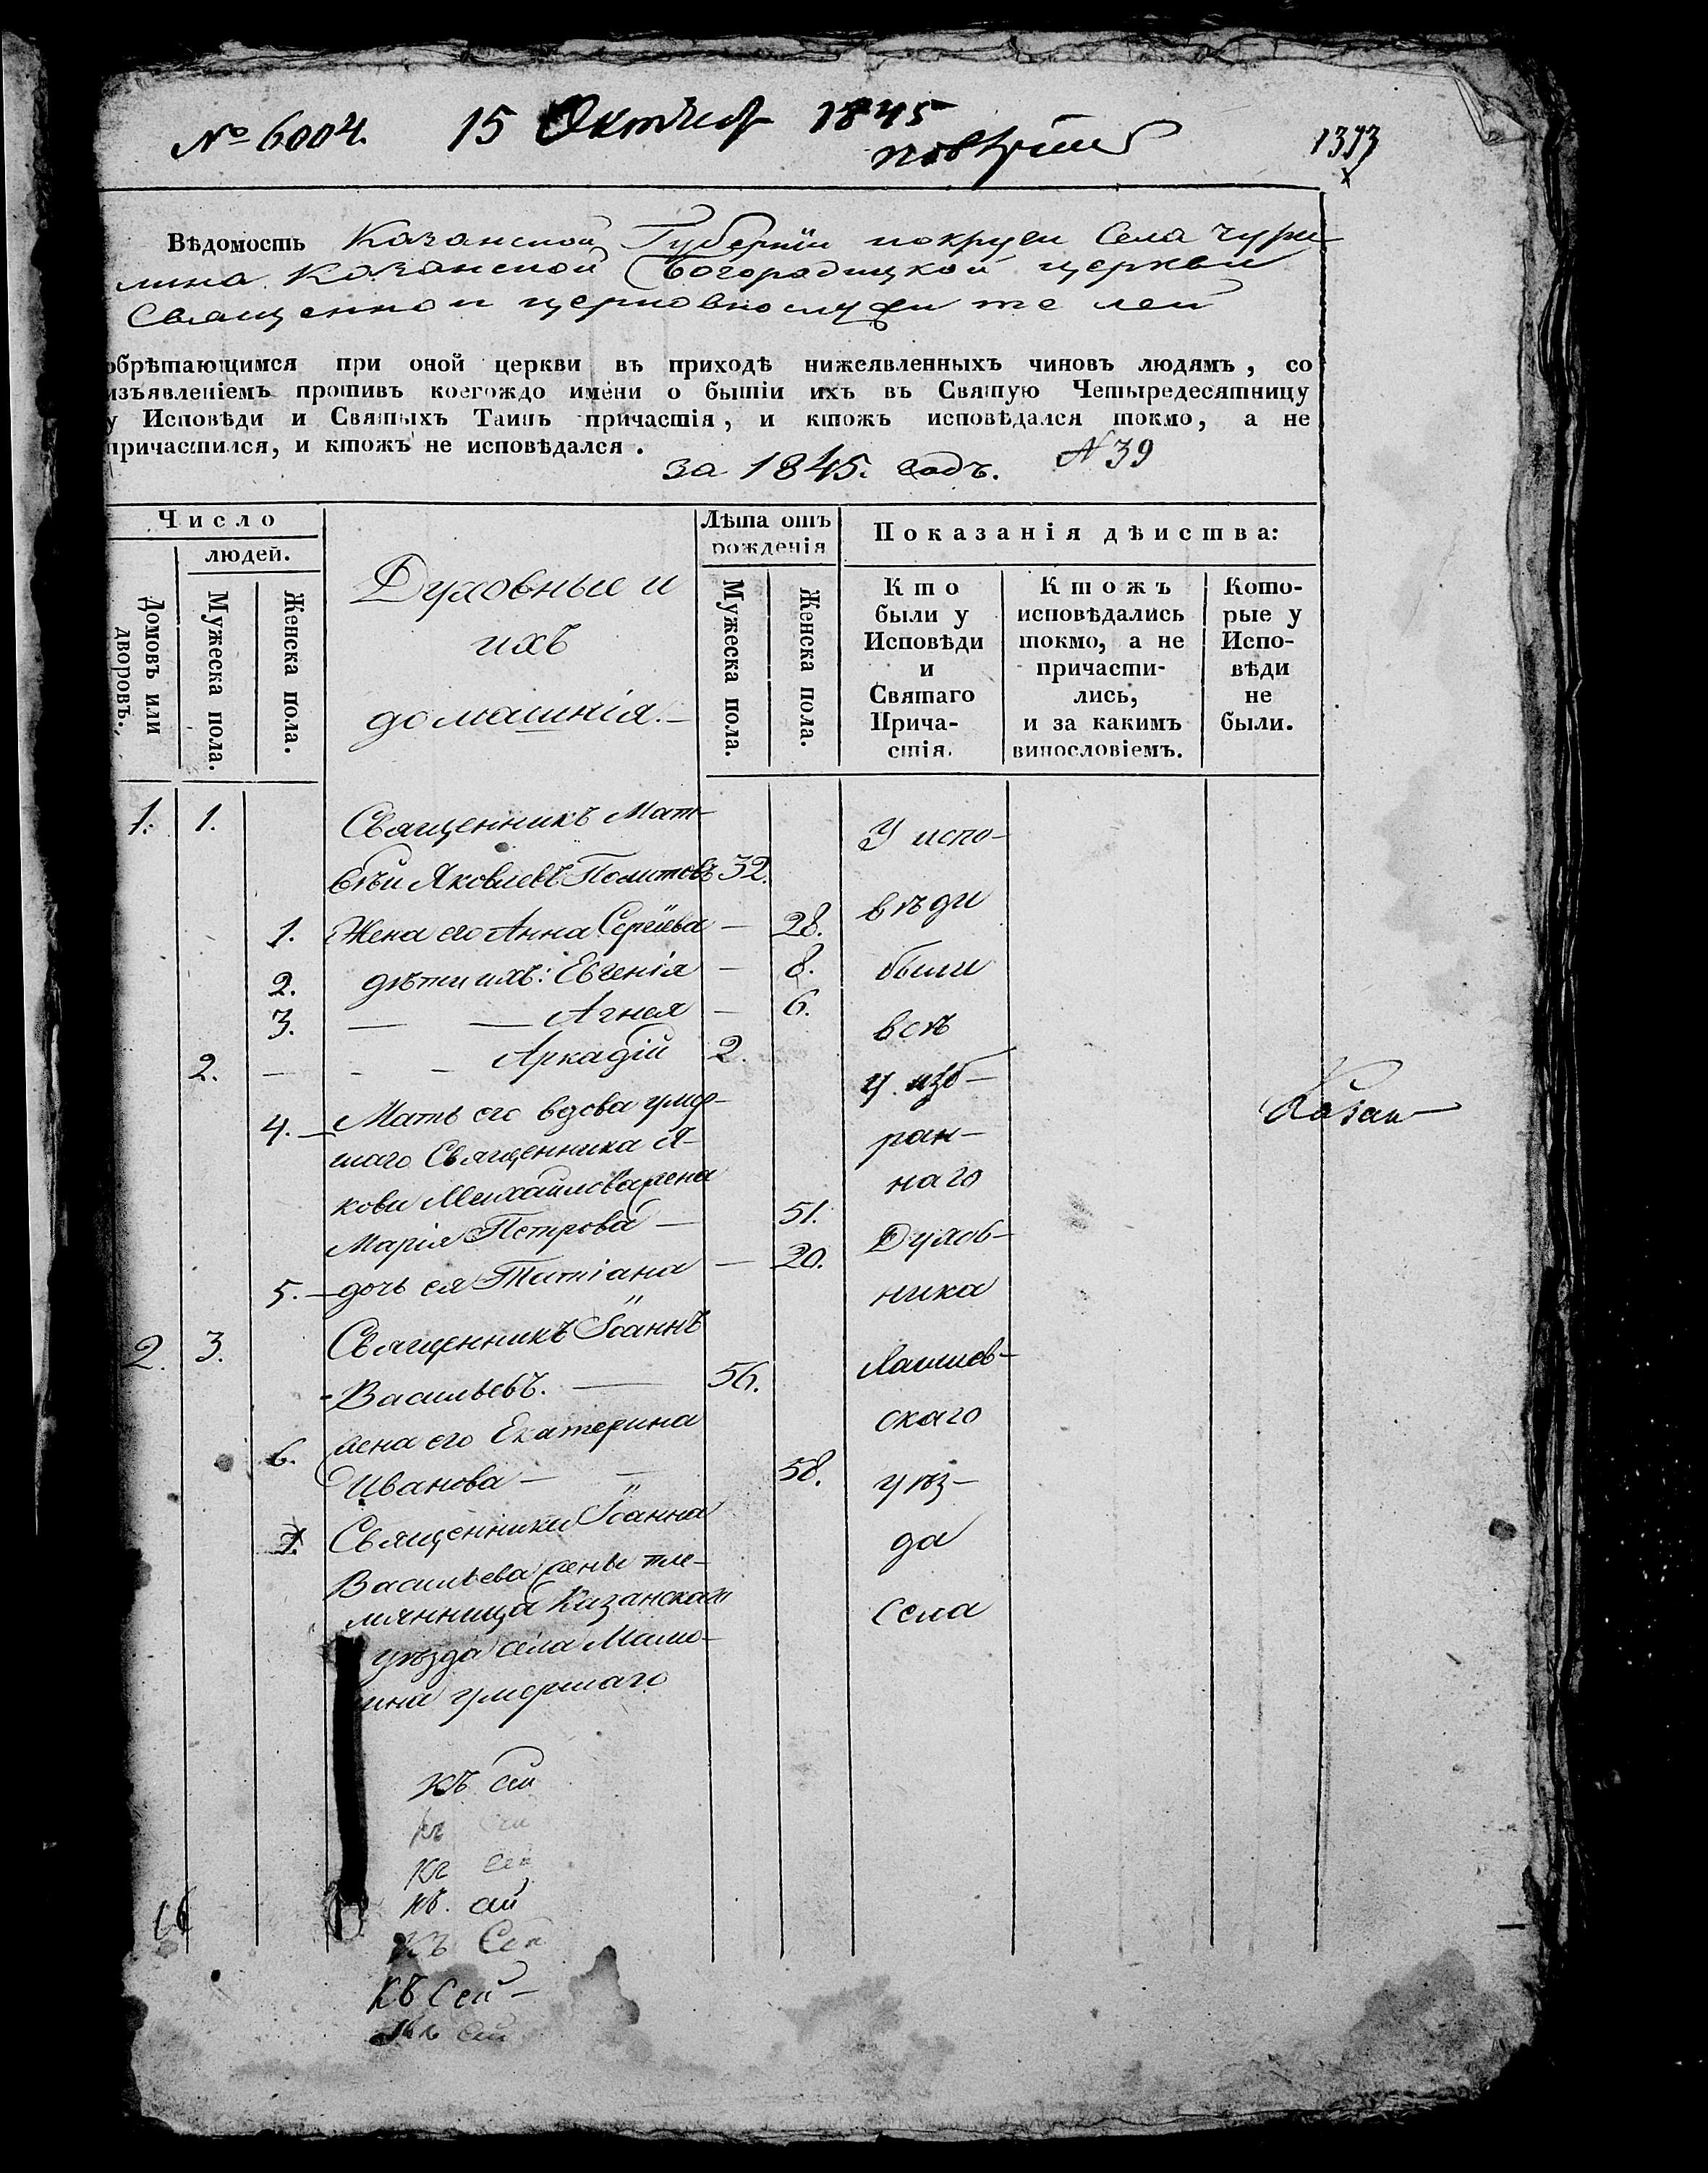 № 6004. 15 1845
1393
Вѣдомость Казанской Губерніи и округи Села Чури-
лина Казанской Богородицкой церкви
Священно и церковнослужителей
обрѣтающимся при оной церкви въ приходѣ нижеявленныхъ чиновъ людямъ, со
изъявленіемъ противъ коегождо имени о бытіи ихъ въ Святую Четыредесятницу
у Исповѣди и Святыхъ Таинъ причастія, и ктожъ исповѣдался токмо, а не
причастился, и ктожъ не исповѣдался.
за 1845. годъ. N 39
Число
людей.
Домовъ или дворовъ.
Мужеска пола.
Женска пола.
Духовные и
ихъ
домашнія.
Лѣта отъ
рожденія
Мужеска пола.
Женска пола.
Показанія дѣиства:
Кто
были у
Исповѣди
и
Святаго
Прича-
стія.
Ктожъ
исповѣдались
токмо, а не
причасти-
лись,
и за какимъ
винословіемъ.
Кото-
рые у
Испо-
вѣди
не
были.
1. 1. Священникъ Мат-
вѣй Яковлевъ 32.
1. Жена его Анна Сергіева — 28.
2. дѣти ихъ: Евгенія — 8.
3. — — Агнея — 6.
2. — - - Аркадій 2.
4. — Мать его вдова умер-
шаго Священника Я-
кова Михайлова жена
Марія Петрова — 51.
5. — дочь ея Татіана — 20.
2. 3. Священникъ Іоаннъ
Васильевъ. — 56.
6. жена его Екатерина
Иванова — — 58.
7. Священника Іоанна
Васильева жены пле-
мянница Казанскаго
уѣзда села
умершаго
У испо-
вѣди
были
всѣ
у изб-
ран-
наго
Духов-
ника
Лаишев-
скаго
уѣз-
да
Села
Казан-
къ сей
къ
къ
къ сей
къ Сей
къ сей -
къ сей